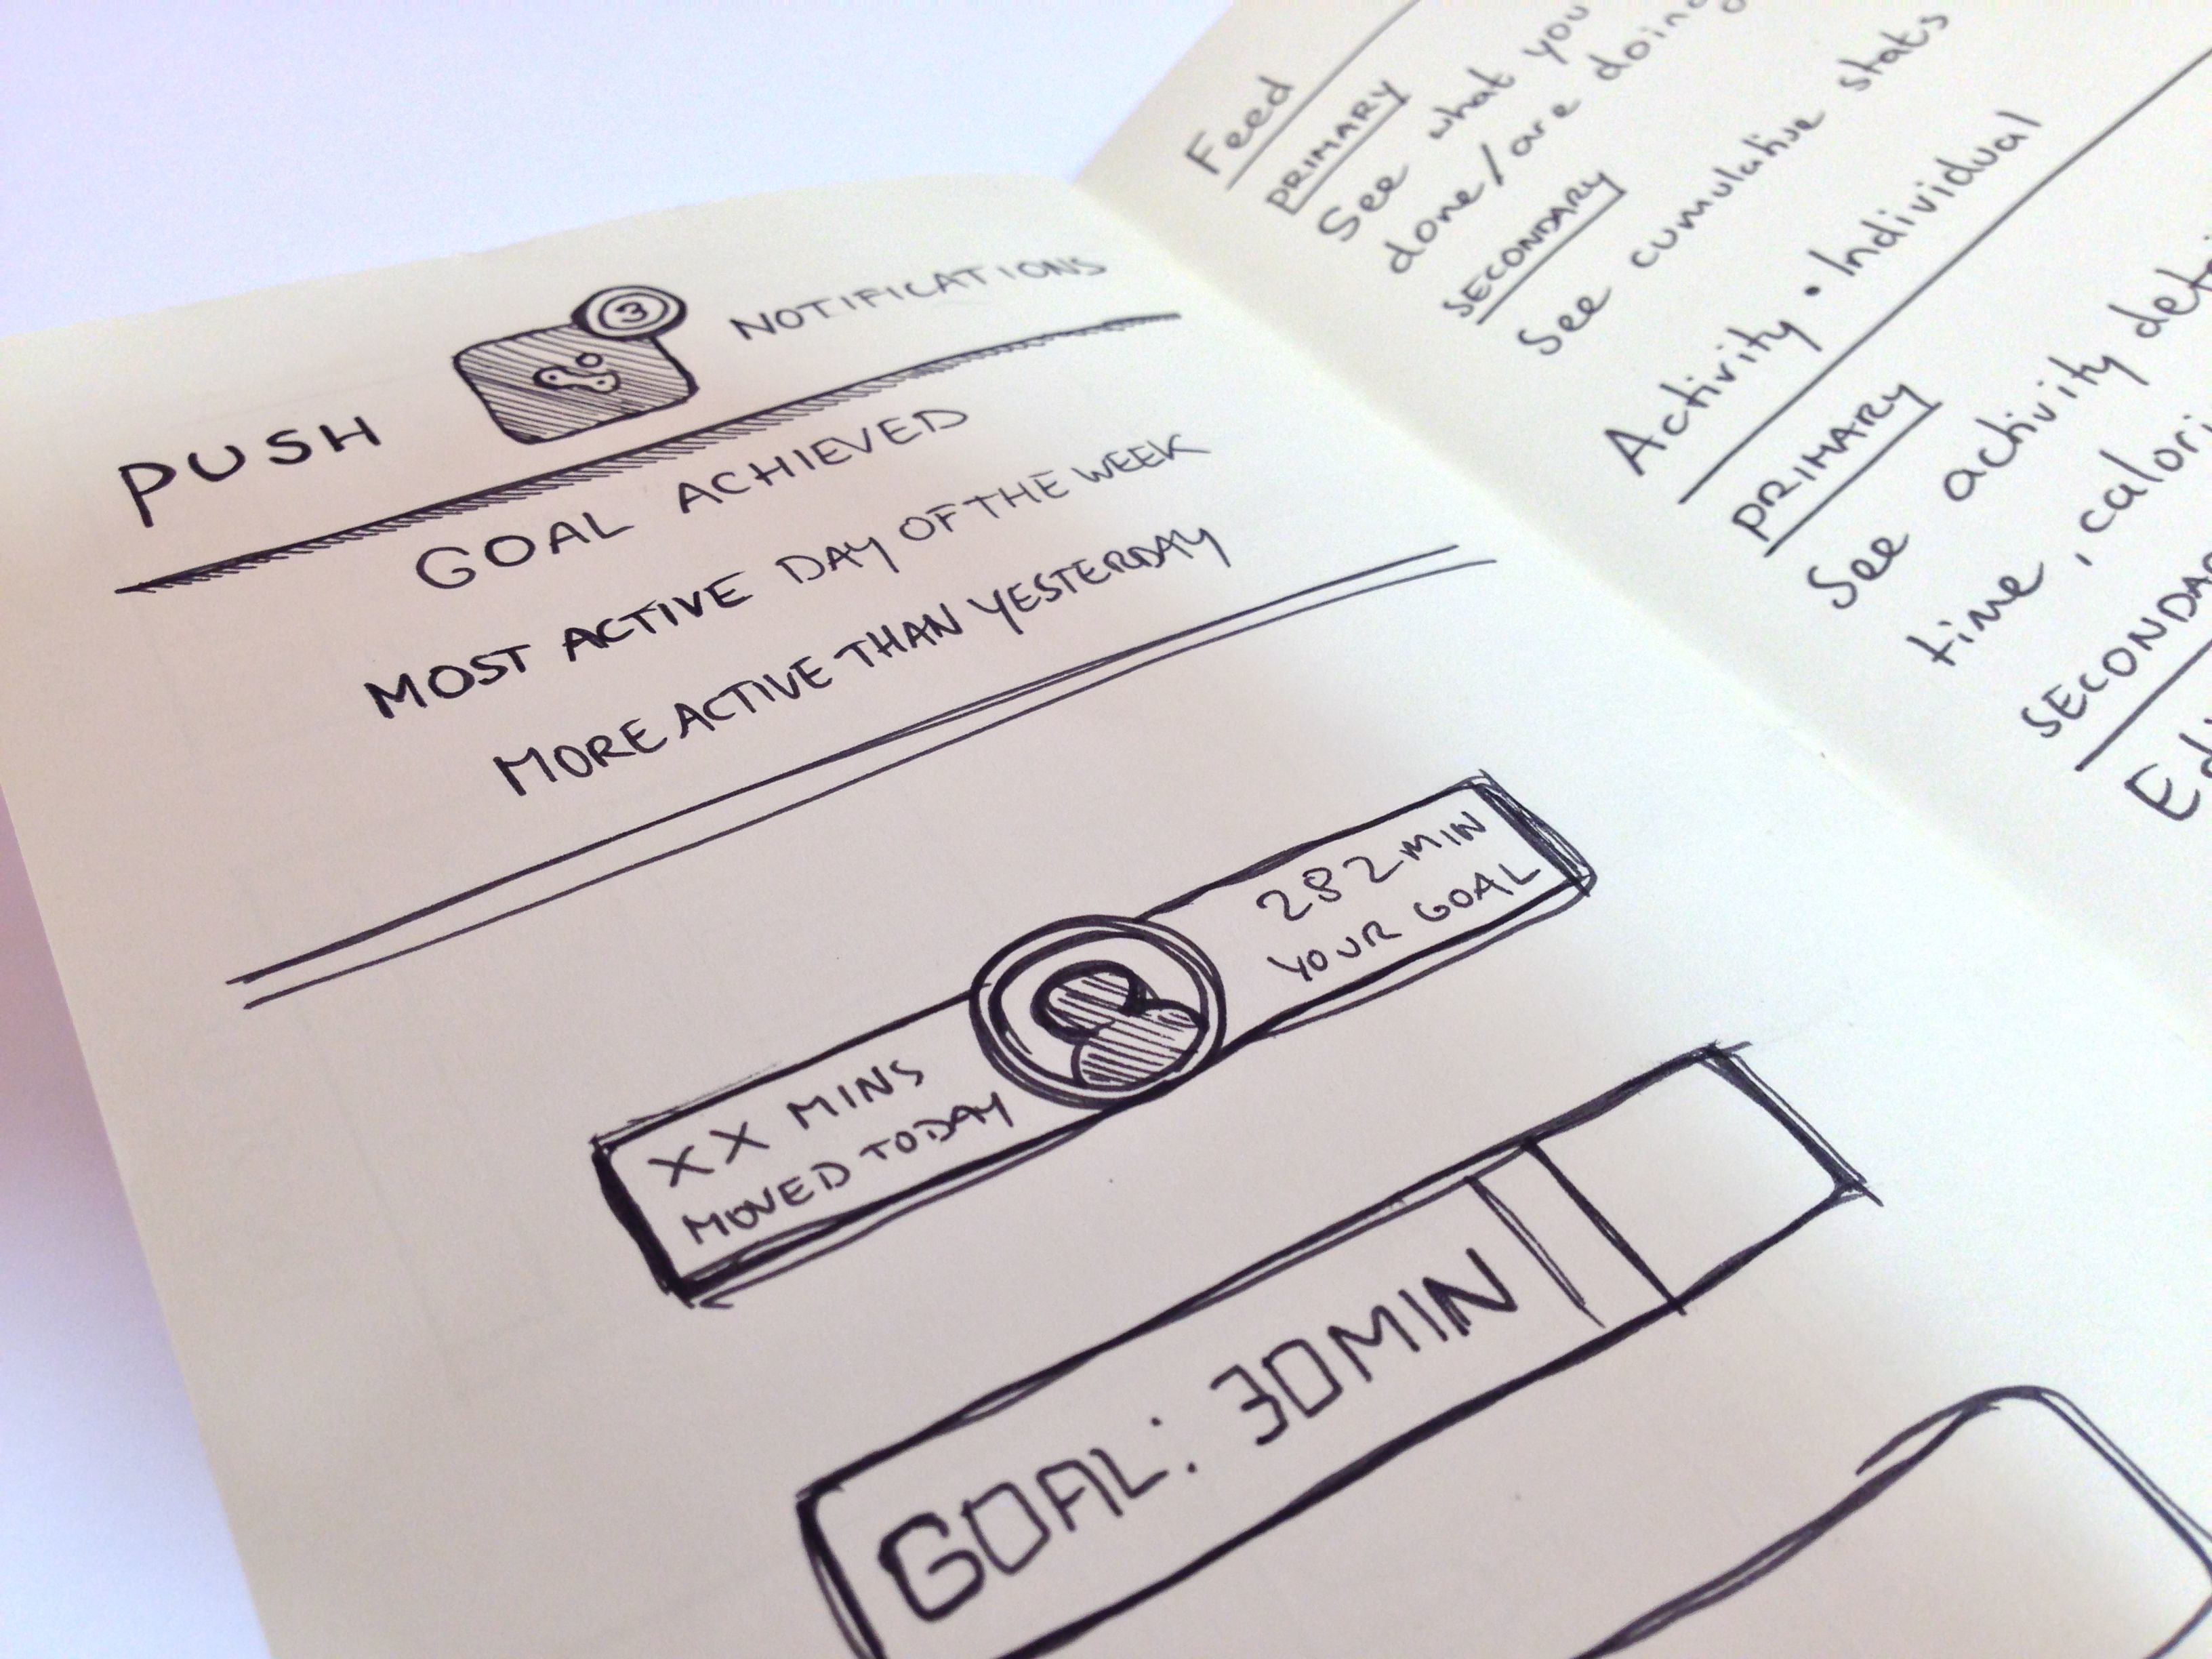 PUSH 3 NOTIFICATIONS
GOAL ACHIEVED
MOST ACTIVE DAY OF THE WEEK
MORE ACTIVE THAN YESTERDAY
XX MINS
MOVED TODAY
282 MIN
YOUR GOAL
GOAL: 30MIN
Feed
PRIMARY
See what you
done/are doing
SECONDARY
See cumulative stats
Activity • Individual
PRIMARY
See activity
time,